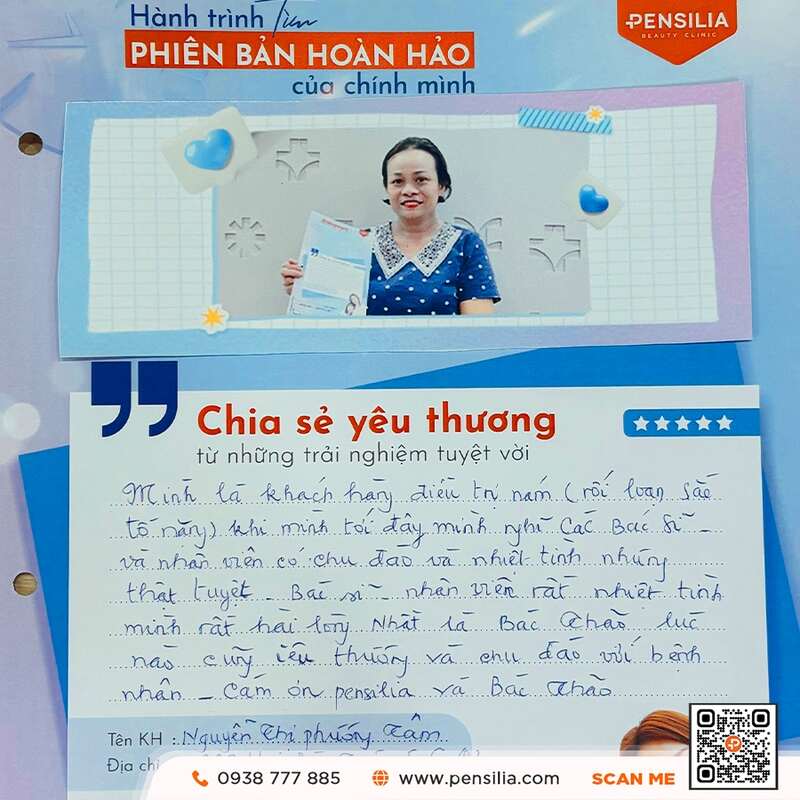 Hành trình Tìm
PENSILIA
BEAUTY CLINIC
PHIÊN BẢN HOÀN HẢO
của chính mình
Chia sẻ yêu thương
từ những trải nghiệm tuyệt vời
Mình là khách hàng điều trị nám (rối loạn sắc
tố nặng) khi mình tới đây mình nghĩ Các Bác sĩ -
và nhân viên có chu đáo và nhiệt tình nhưng
thật tuyệt - Bác sĩ - nhân viên rất nhiệt tình
mình rất hài lòng Nhất là Bác Thảo lúc
nào cũng iêu thương và chu đáo với bệnh
nhân - Cám ơn pensilia và Bác Thảo
Tên KH : Nguyễn Thị phương Tâm
Địa chỉ
0938 777 885 www.pensilia.com SCAN ME